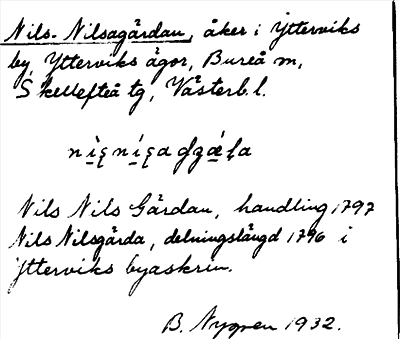 Nils-Nilsagårdan, åker i Ytterviks
by Ytterviks ägor, Bureå sn,
Skellefteå tg, Västerb. l.
Nils Nils Gårdan, handling 1797
Nils Nilsgårda, delningslängd 1796 i
Ytterviks byaskrin.
B. Nygren 1932.